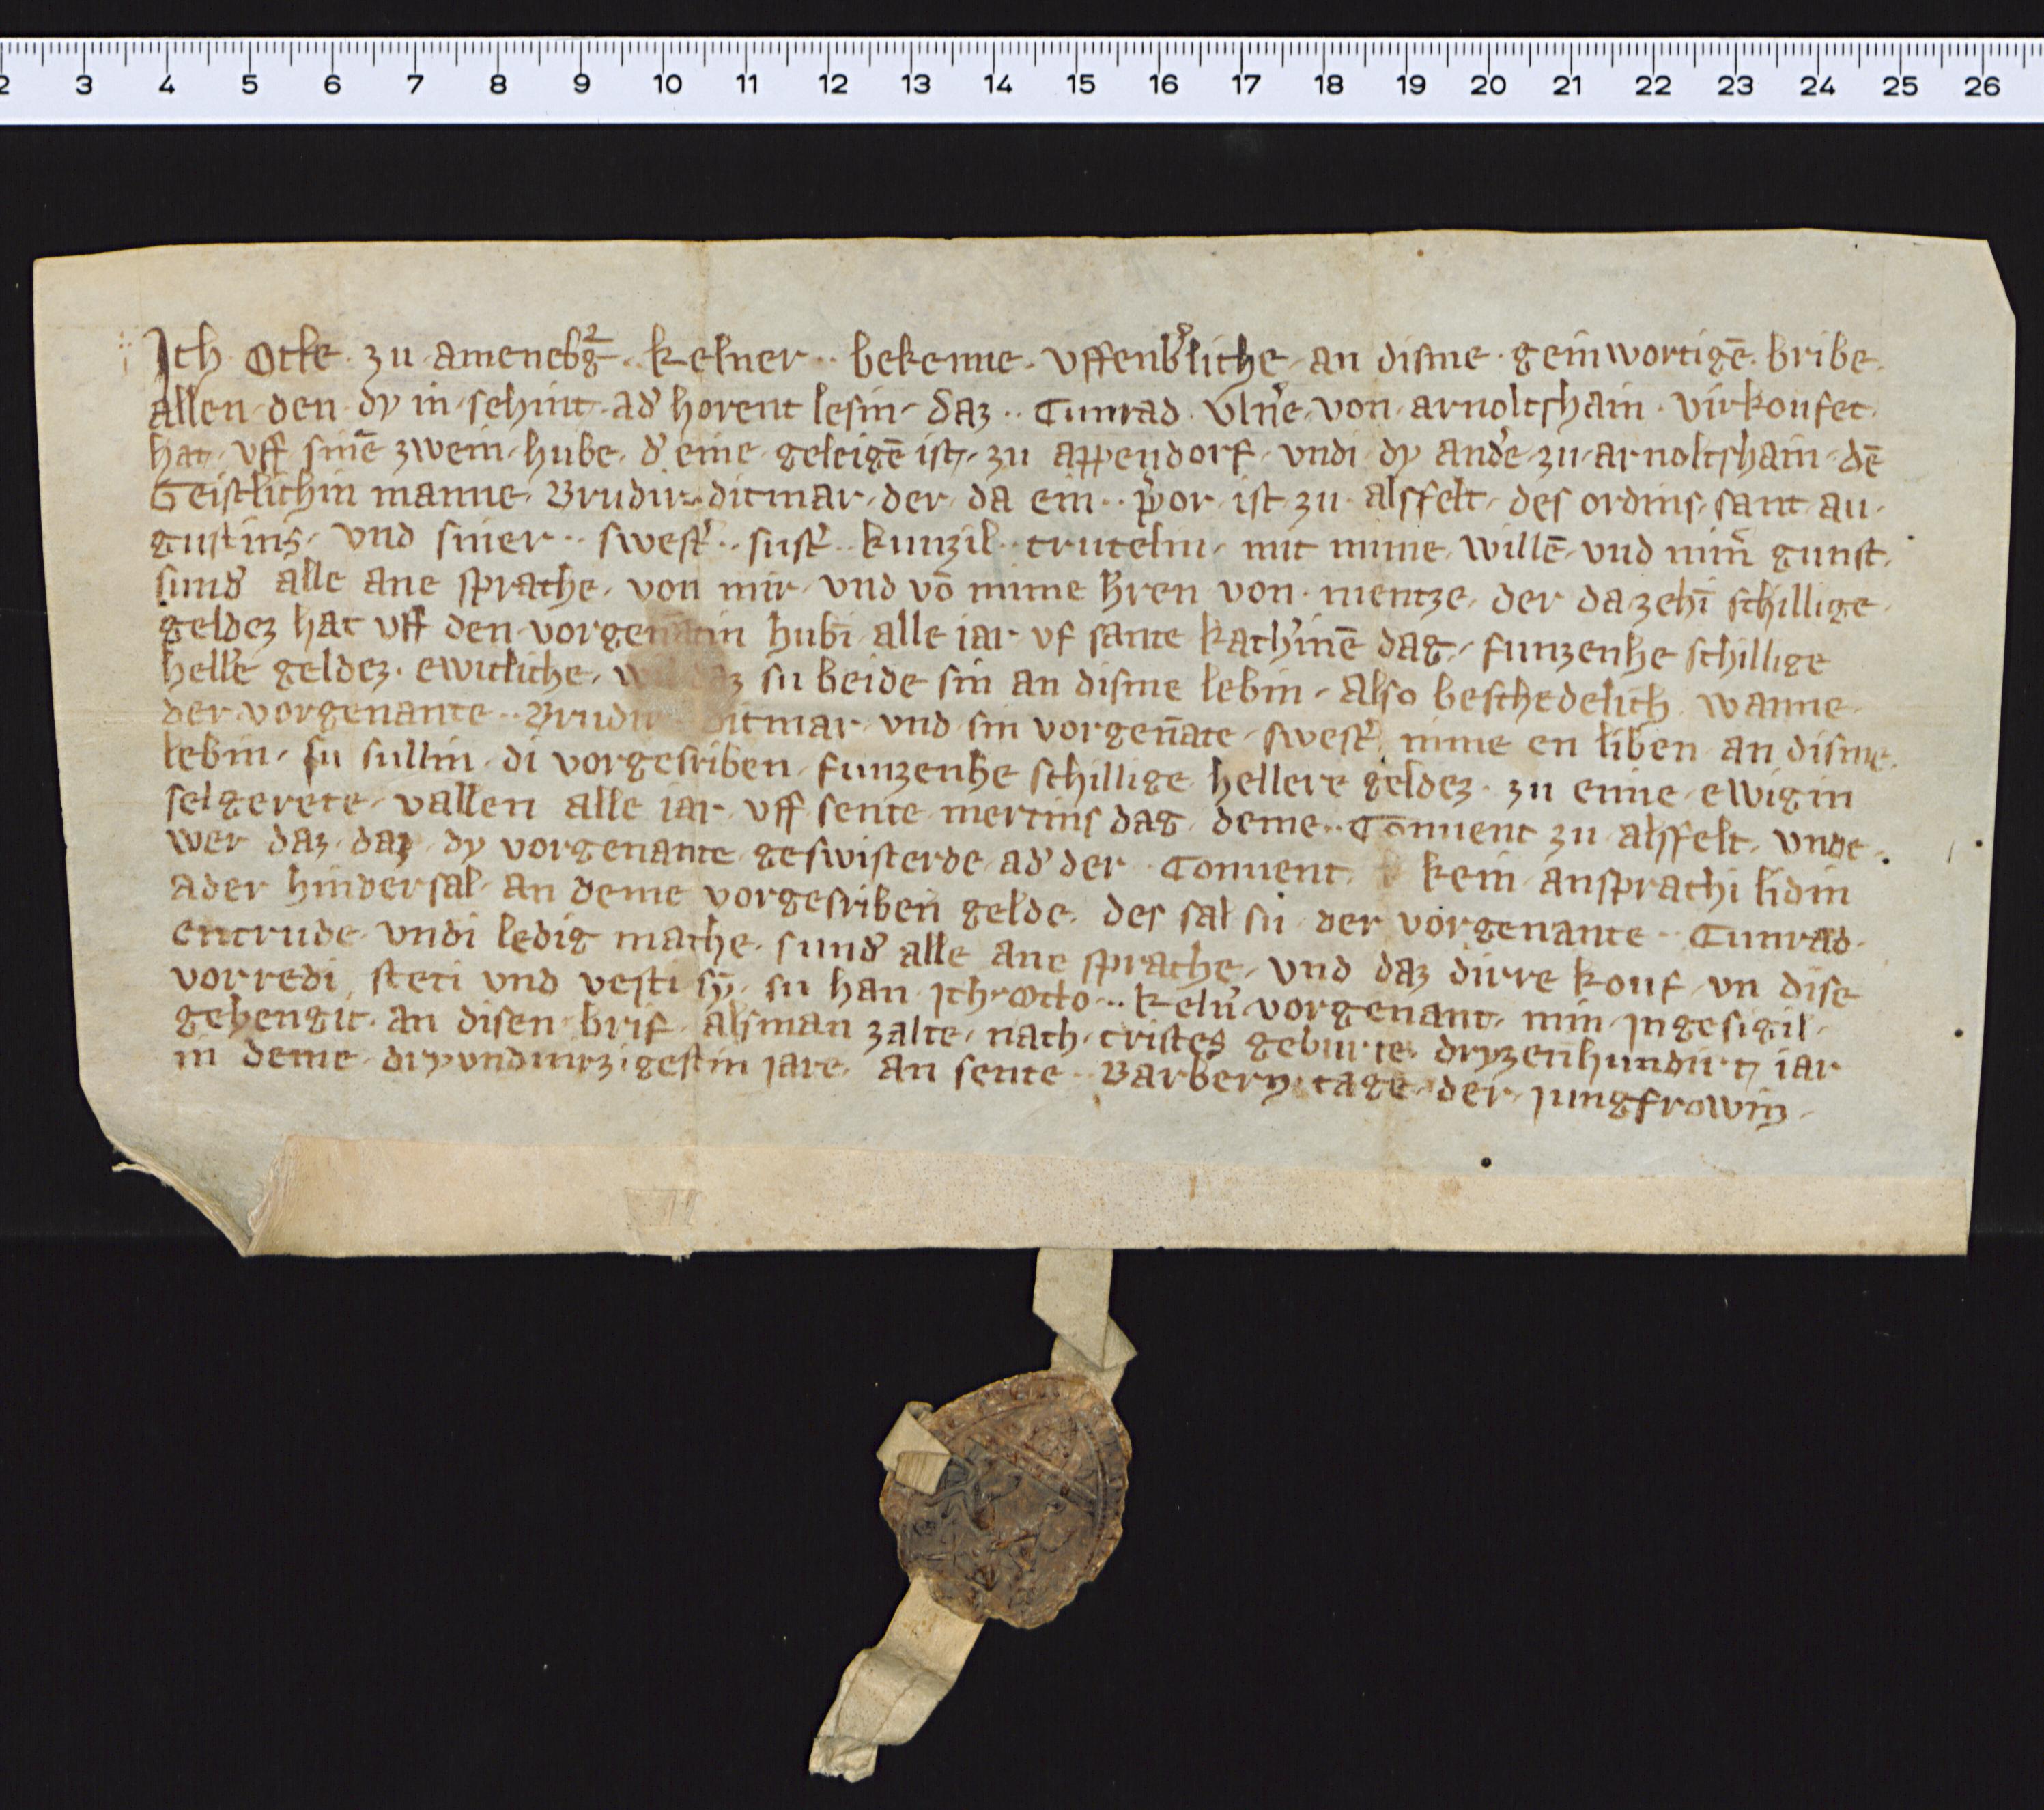 2 3 4 5 6 7 8 9 10 11 12 13 14 15 16 17 18 19 20 21 22 23 24 25 26
Ich Otte · zu amenebg̅ ·· kelner ·· bekenne · uffenb̕liche · an disme · geinwortigē · bribe ·
allen · den · dy in · sehint · ad̕ horent lesin · daz ·· Cunrad · uln̕e · von · arnoltshain · virkoufet ·
hat · uff sinē zwein · hube · d̕ eine · geleigē ist · zu appendorf · undi · dy and̕e · zu · arnoltshain · dē
Geistlichin manne · Brudir · ditmar · der · da ein ·· p̕or · ist · zu · alsfelt · des ordins · sant · au-
gustins · und siner ·· swest̕ ·· sust̕ ·· kunzil ·· trutelin · mit mime · willē · und min̄ gunst ·
sund̕ alle ane sprache · von mir · und vō mime h̄ren von · mentze · der da zehī schillige ·
geldez hat uff den · vorgenātin hubī · alle iar · uf sante kath̕inē dag · funzenhe schillige
hell̕e geldez · ewicliche · wil daz su beide sin an disme lebin · also beschedelich wanne ·
der · vorgenante ·· Brudir ditmar · und · sin vorgen̄ate · swest̕ nime en liben an disme ·
lebin · su sullin · di vorgesriben · funzenhe schillige hellere geldez · zu eime · ewigin
selgerete · vallen alle iar · uff sente mertins dag deme ·· Cōnuent zu alsfelt · unde ·
wer daz · daz dy vorgenante geswisterde · ad̕ der · Conuent kein ansprachi lidin
ader hindersal · an deme vorgesriben gelde · des sal su · der vorgenante ·· Cunrad ·
entrude · undi ledig mache · sund̕ alle ane sprache · und daz dirre kouf · un dise
vorredi steti und vesti sȳ · su han · ich · Otto ·· keln̕ · vorgenant · min · ingesigil ·
gehengit · an disen · brif · alsman zalte · nach · cristes geburte dryzenhundirt iar
in deme · dryundvirzigestin jare · an sente · Barbern · tage · der · jungfrowin ·